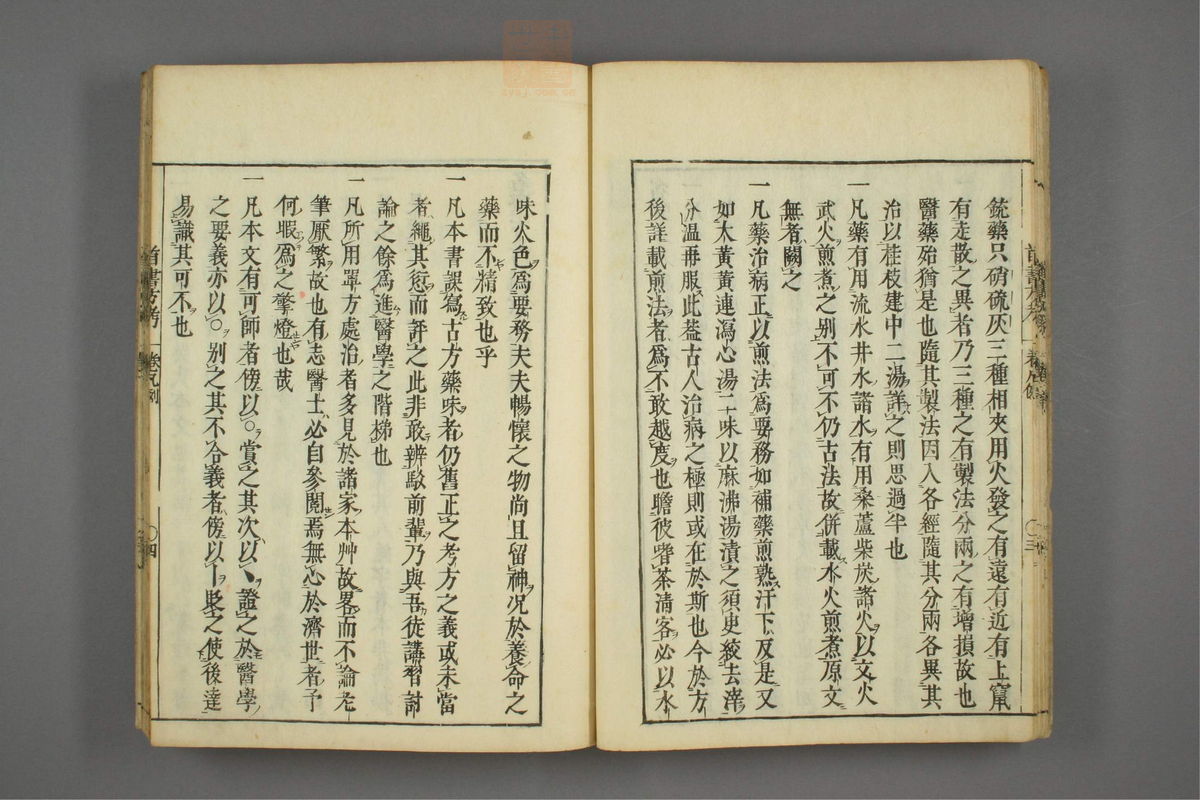 銃藥只硝硫灰三種相夾用火發之有遠有近有上竄
有走散之異者乃三種之有製法分兩之有增損故也
醫藥殆猶是也隨其製法因入各經隨其分兩各異其
治以桂枝建中二湯詳之則思過半也
一凡藥有用流水井水諸水有用桑蘆柴炭諸火以文火
武火煎煮之别不可不仍古法故併載水火煎煮原文
無者闕之
一凡藥治病正以煎法爲要務如補藥煎熟汗下及是又
如大黃黃連瀉心湯二味以麻沸湯漬之須臾絞去滓
分温再服此葢古人治病之極則或在於斯也今於方
後詳載煎法者爲不敢越度也瞻彼嗜茶淸客必以水
味火色爲要務夫夫暢懷之物尚且留神况於養命之
藥而不精致也乎
一凡本書誤寫古方藥味者仍舊正之考方之義或未當
者繩其愆而評之此非敢辨駁前輩乃與吾徒講習討
論之餘爲進醫學之階梯也
一凡所用單方處治者多見於諸家本艸故畧而不論老
筆厭繁故也有志醫士必自參閱焉無心於濟世者予
何暇爲之擎燈也哉
一凡本文有可師者傍以○賞之其次以丶證之於醫學
之要義亦以○别之其不合義者傍以丨貶之使後達
易識其可不也